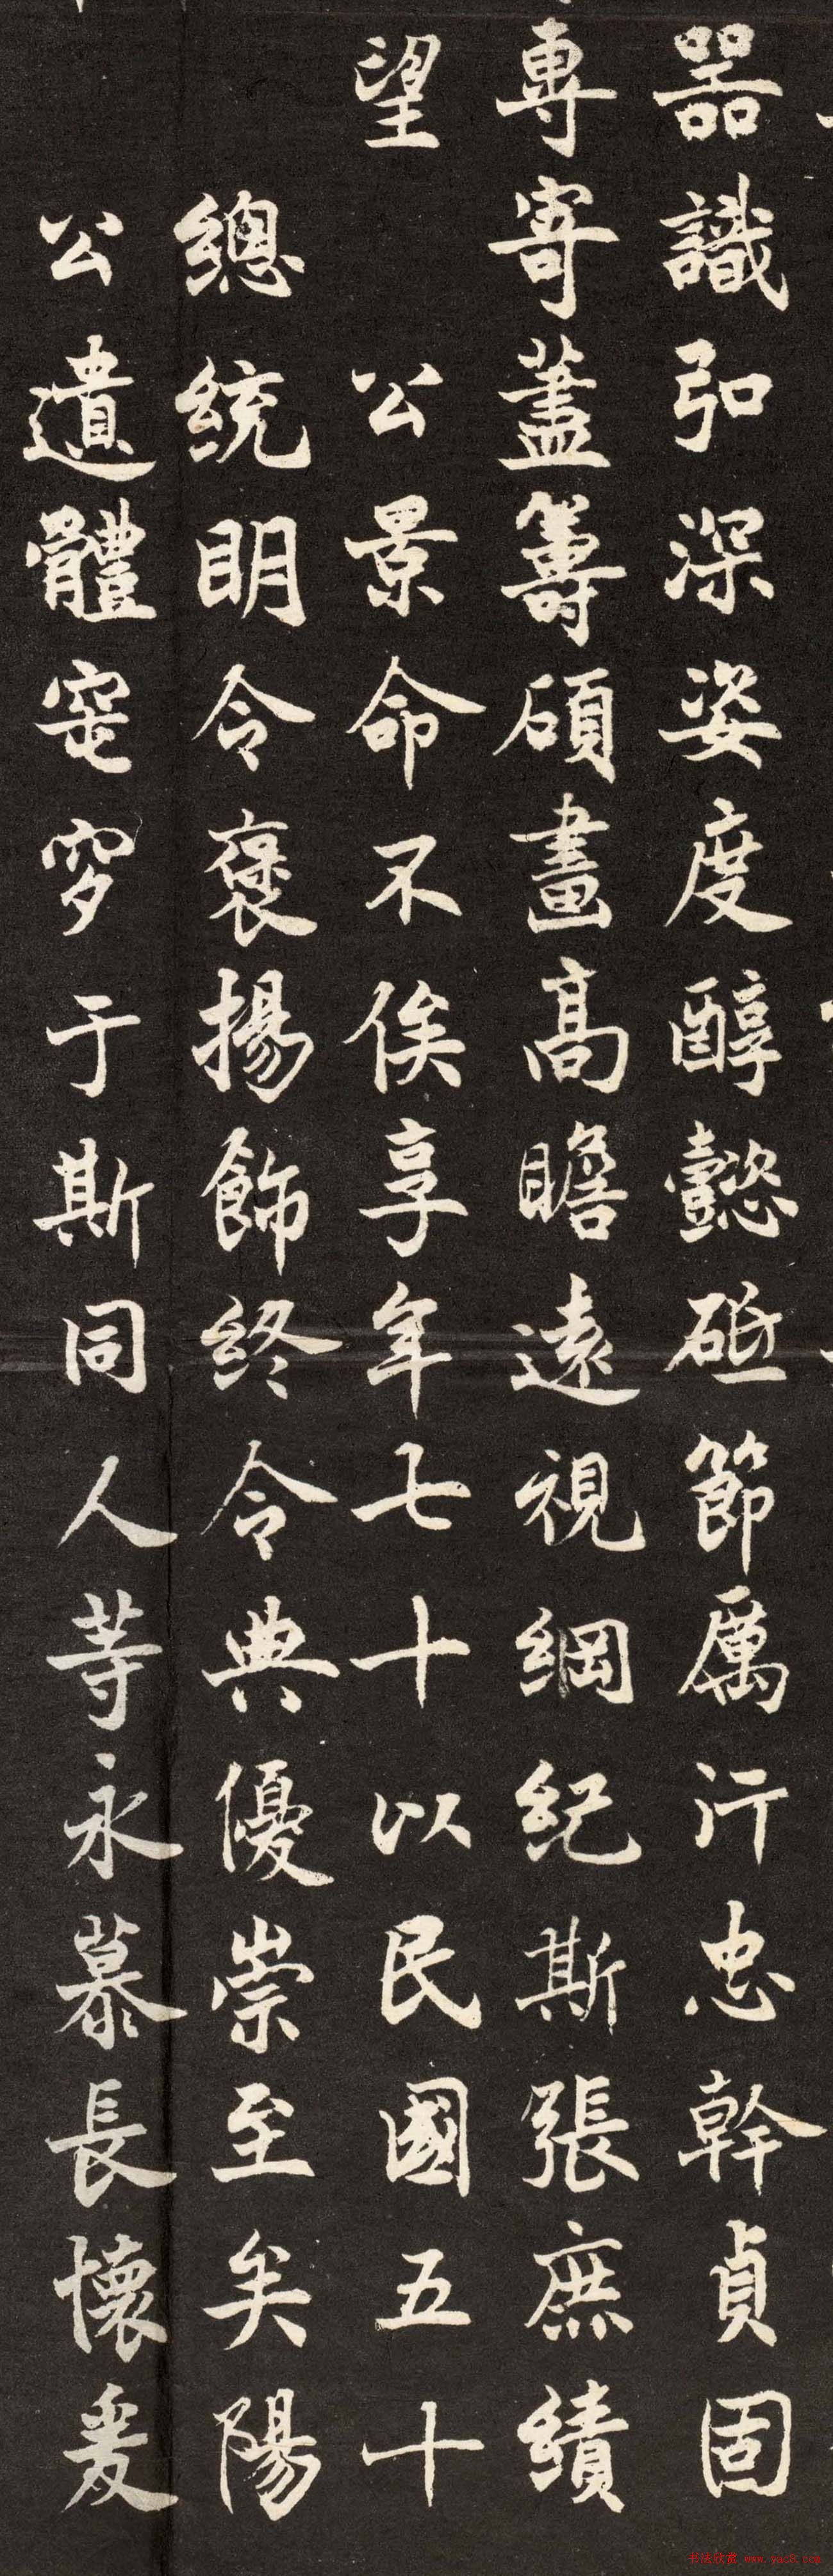 器識弘深姿度醇懿砥節厲行忠幹貞固
專寄藎籌碩畫高瞻遠視綱紀斯張庶績
望 公景命不俟享年七十以民國五十
總統明令褒揚飾終令典優崇至矣陽
公遺體窀穸于斯同人等永慕長懷爰
书法欣赏 www.yac8.com